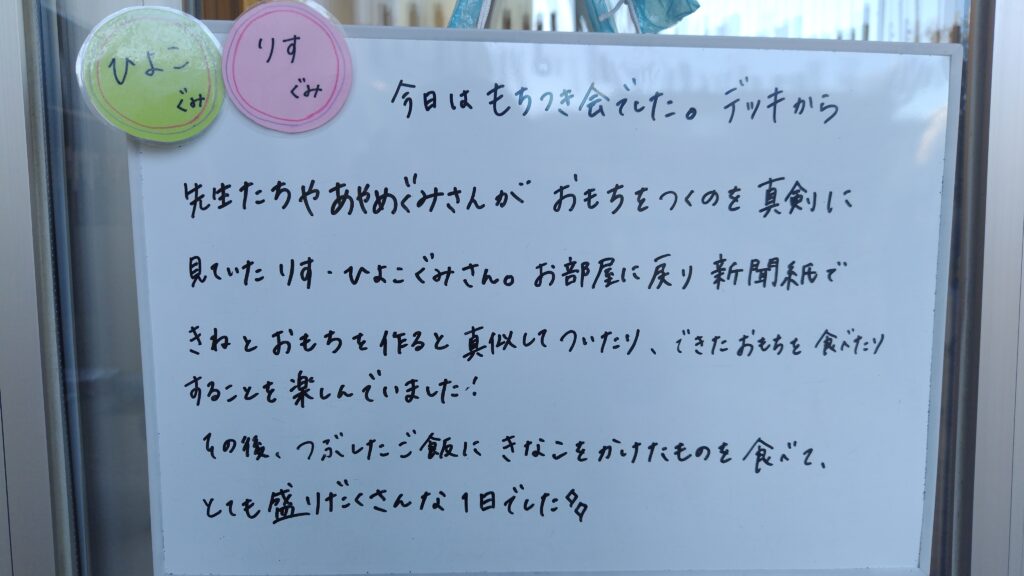 ひよこ
ぐみ
りす
ぐみ
今日は もちつき会でした。デッキから
先生たちや あやめぐみさんが おもちをつくのを 真剣に
見ていた りす・ひよこぐみさん。お部屋に戻り 新聞紙で
きねと おもちを 作ると 真似して ついたり、できたおもちを 食べたり
することを 楽しんでいました!
その後、つぶしたご飯に きなこをかけたものを 食べて、
とても 盛りだくさんな 1日でした